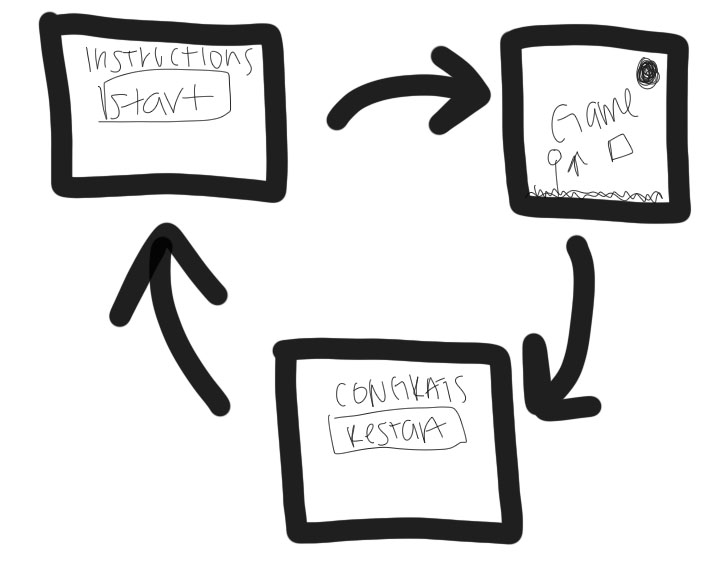 Instructions
start
Game
CONGRATS
Restart